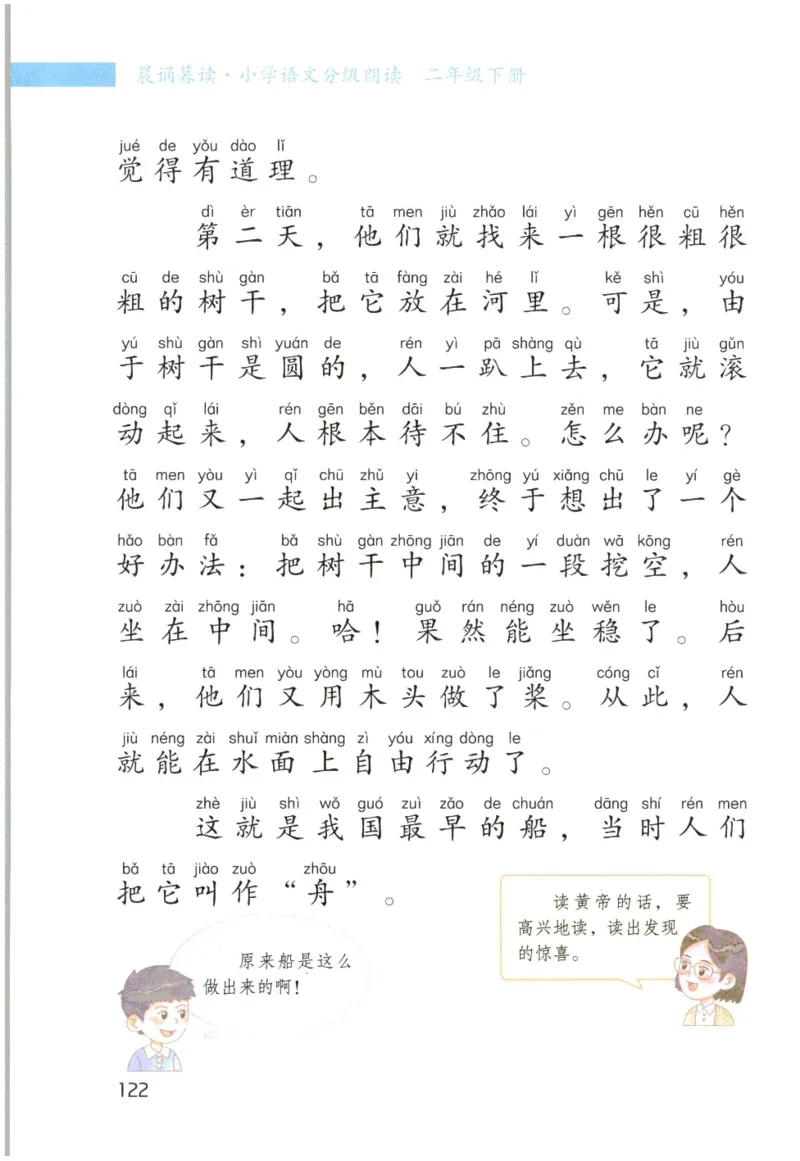 晨诵暮读·小学语文分级朗读 二年级下册
jué de yǒu dào lǐ
觉得有道理。
dì èr tiān tā men jiù zhǎo lái yì gēn hěn cū hěn
第二天，他们就找来一根很粗很
cū de shù gàn bǎ tā fàng zài hé lǐ kě shì yóu
粗的树干，把它放在河里。可是，由
yú shù gàn shì yuán de rén yì pā shàng qù tā jiù gǔn
于树干是圆的，人一趴上去，它就滚
dòng qǐ lái rén gēn běn dāi bú zhù zěn me bàn ne
动起来，人根本待不住。怎么办呢？
tā men yòu yì qǐ chū zhǔ yi zhōng yú xiǎng chū le yí gè
他们又一起出主意，终于想出了一个
hǎo bàn fǎ bǎ shù gàn zhōng jiān de yí duàn wā kōng rén
好办法：把树干中间的一段挖空，人
zuò zài zhōng jiān hā guǒ rán néng zuò wěn le hòu
坐在中间。哈！果然能坐稳了。后
lái tā men yòu yòng mù tou zuò le jiǎng cóng cǐ rén
来，他们又用木头做了桨。从此，人
jiù néng zài shuǐ miàn shàng zì yóu xíng dòng le
就能在水面上自由行动了。
zhè jiù shì wǒ guó zuì zǎo de chuán dāng shí rén men
这就是我国最早的船，当时人们
bǎ tā jiào zuò zhōu
把它叫作“舟”。
读黄帝的话，要
高兴地读，读出发现
的惊喜。
原来船是这么
做出来的啊！
122